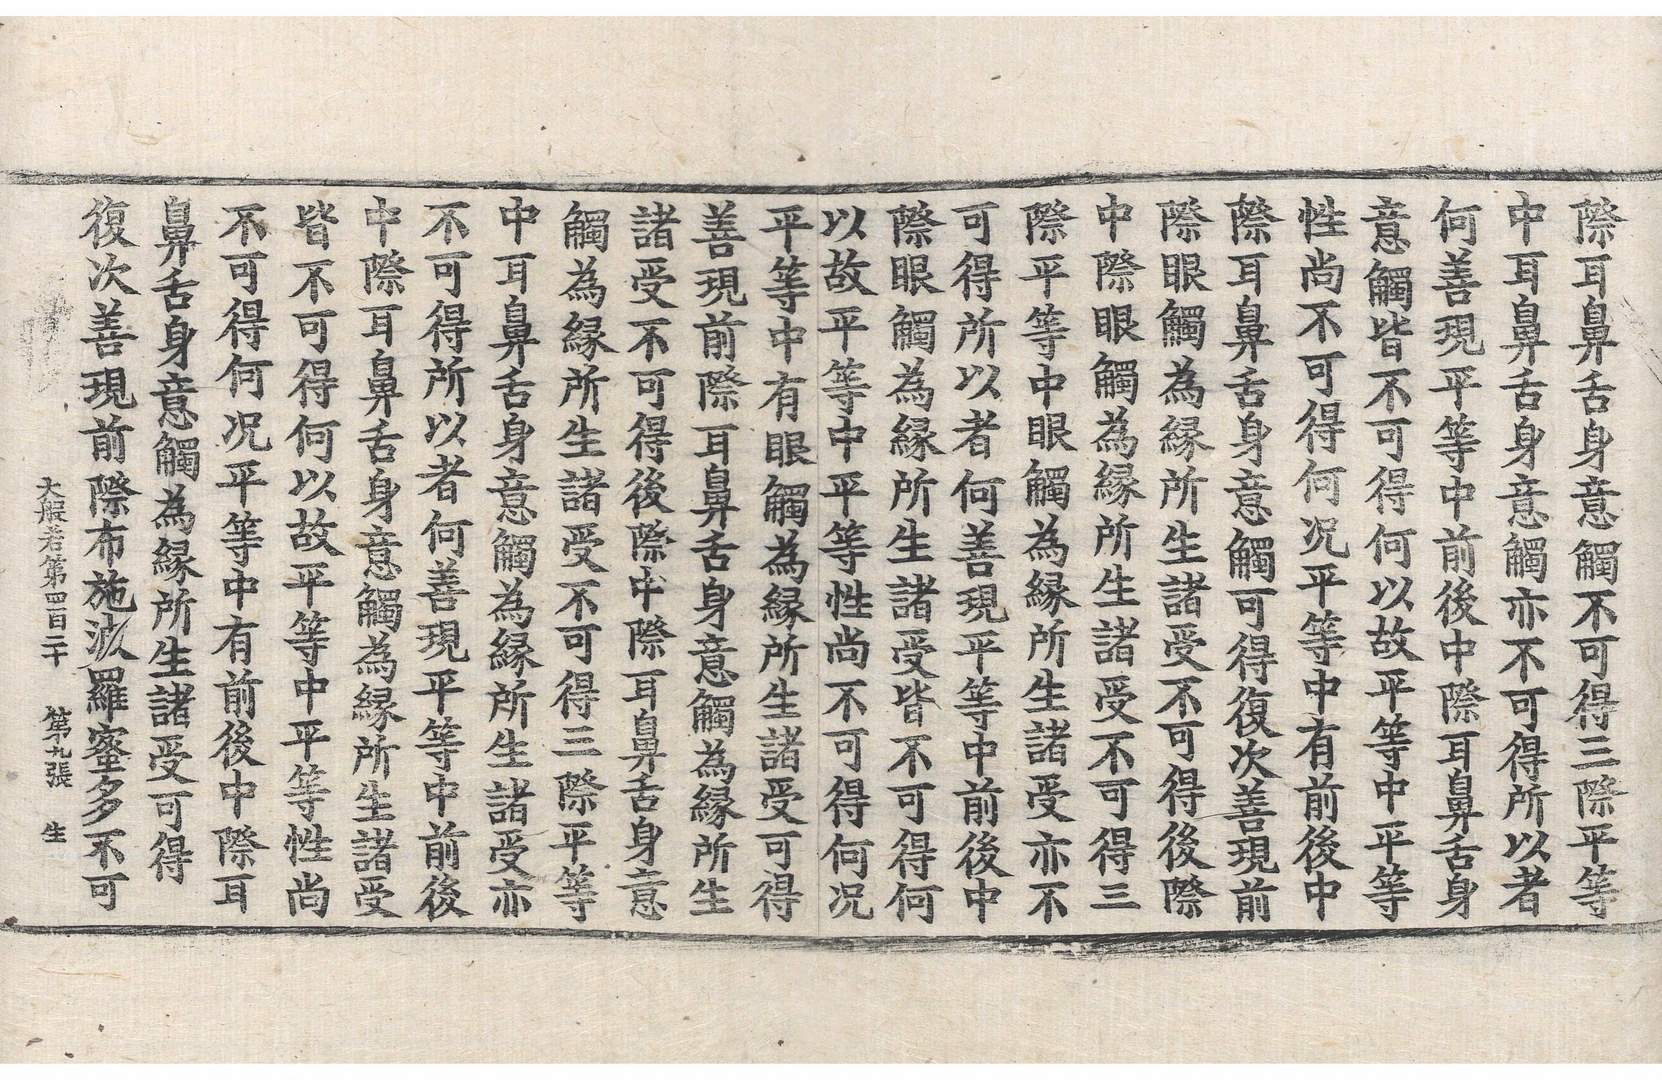 際耳鼻舌身意觸不可得三際平等
中耳鼻舌身意觸亦不可得所以者
何善現平等中前後中際耳鼻舌身
意觸皆不可得何以故平等中平等
性尚不可得何况平等中有前後中
際耳鼻舌身意觸可得復次善現前
際眼觸為緣所生諸受不可得後際
中際眼觸為緣所生諸受不可得三
際平等中眼觸為緣所生諸受亦不
可得所以者何善現平等中前後中
際眼觸為緣所生諸受皆不可得何
以故平等中平等性尚不可得何况
平等中有眼觸為緣所生諸受可得
善現前際耳鼻舌身意觸為緣所生
諸受不可得後際中際耳鼻舌身意
觸為緣所生諸受不可得三際平等
中耳鼻舌身意觸為緣所生諸受亦
不可得所以者何善現平等中前後
中際耳鼻舌身意觸為緣所生諸受
皆不可得何以故平等中平等性尚
不可得何况平等中有前後中際耳
鼻舌身意觸為緣所生諸受可得
復次善現前際布施波羅蜜多不可
大般若第四百二十 第九張 生